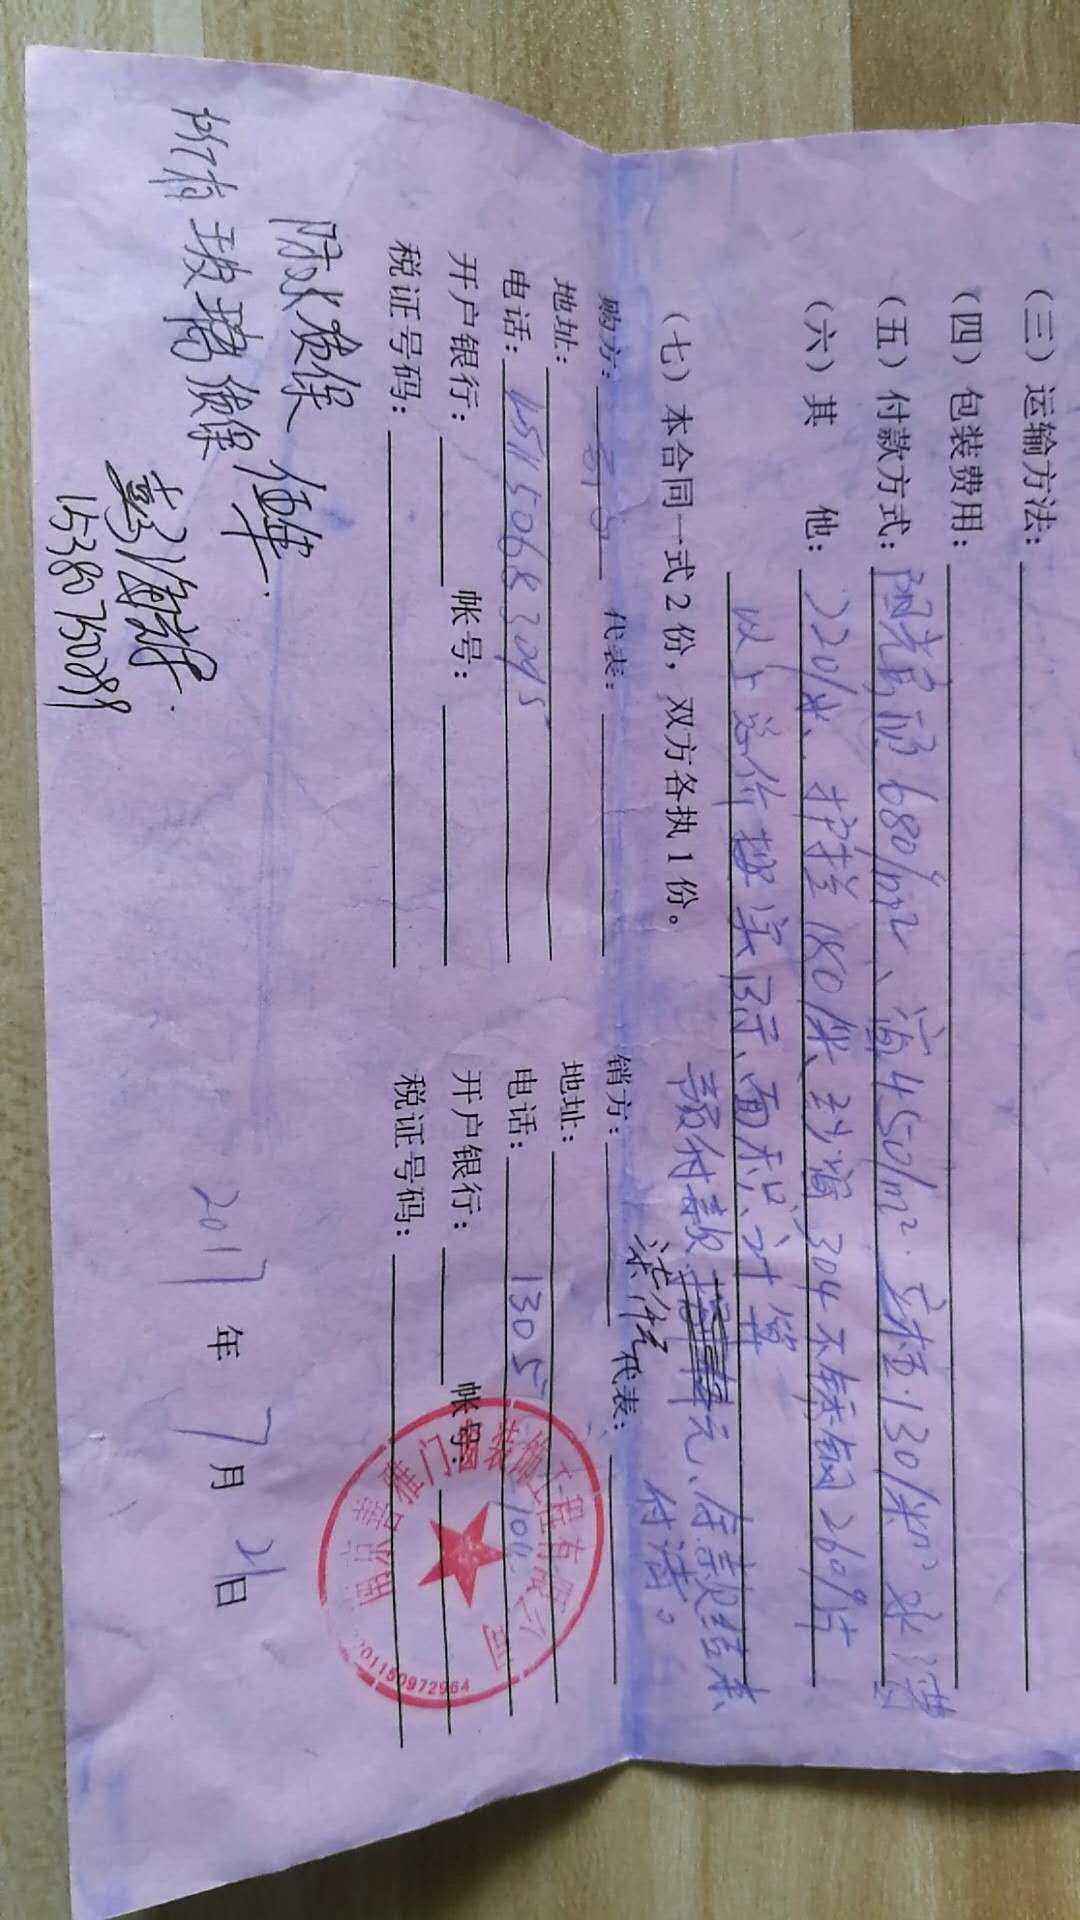 （三）运输方法：
（四）包装费用：
（五）付款方式：阳光房680/m²、窗450/m².
130/米m² 水
（六）其　他：220/米、护栏180/米、纱窗304不锈钢260/片
以上总价按实际面积计算
（七）本合同一式2份，双方各执1份。
预付款 元、余款结束
付清。
购方：
代表：
地址：
电话：151150683095
开户银行：
帐号：
税证号码：
销方：
代表：
地址：
电话：1305
开户银行：
帐号：
税证号码：
雅门窗装饰工程有限公司
01150972964
防水质保
所有玻璃质保
伍年.
15380750899
2017年7月21日